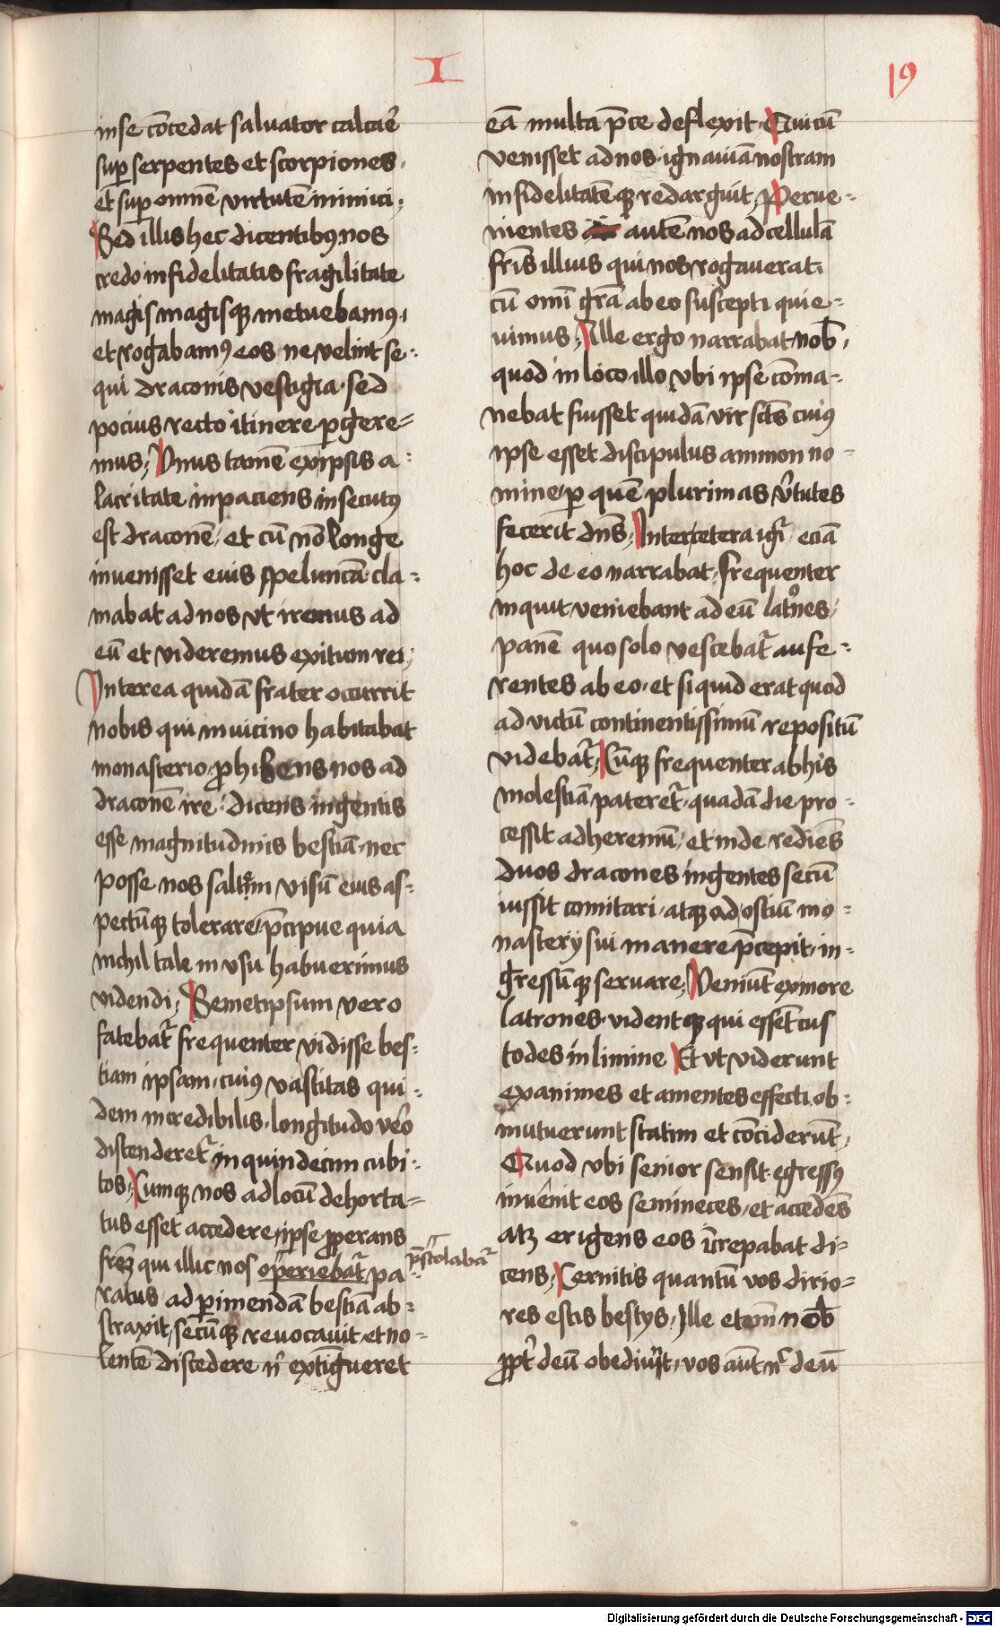 I
19
in se cōcedat saluator calcaē
suꝑ serpentes et scorpiones ·
et suꝑ omnē virtutē inimici ;
Sed illis hec dicentibꝰ nos
credo infidelitatis fragilitate
magis magisqꝫ metuebamꝰ ·
et rogabamꝰ eos · ne velint se :
qui draconis vestigia · sed
pocius recto itinere ꝑgere=
mus ; Vnus tamē ex ipsis a :
lacritate inpaciens insecutꝰ
est draconē · et cū nō longe
inuenisset eius speluncā cla :
mabat ad nos vt iremus ad
eū et videremus exitum rei ;
Interea quidā frater occurrit
nobis qui in uicino habitabat
monasterio · ꝓhibens nos ad
draconē ire · dicens ingentis
esse magnitudinis bestiā · nec
posse nos saltim visū eius as :
pectūqꝫ tolerare · p̄cipue quia
nichil tale in vsu habuerimus
videndi ; Semetipsum vero
fatebat᷑ frequenter vidisse bes :
tiam ipsam · cuiꝰ vastitas qui :
dem incredibilis · longitudo v̄o
distenderet᷑ in quindecim cubi :
tos ; Cumqꝫ nos ad locū dehorta=
tus esset accedere · ipse ꝓperans
fr̄eꝫ qui illic nos operiebat᷑ pa :
p̄stolabat᷑
ratus ad ꝑimendā bestiā ab :
straxit · secūqꝫ reuocauit · et no -
lentē discedere nͥ extīgueret
eā multa p̄ce deflexit · Qui cū
venisset ad nos · ignauiā nostram
infidelitatēqꝫ redarguit ; Perue -
nientes autē nos ad cellulā
fr̄is illius qui nos rogauerat ·
cū om̄i gr̄a ab eo suscepti quie :
uimus ; Ille ergo narrabat nob̄ ·
quod in loco illo vbi ipse cōma :
nebat fuisset quidā vir sc̄tꝰ cuiꝰ
ipse esset discipulus ammon no -
mine · ꝑ quē plurimas v̄tutes
fecerit dn̄s ; Inter cetera igͥ · eciā
hoc de eo narrabat · frequenter
inquit veniebant ad eū latͦnes ·
panē quo solo vescebat᷑ aufe :
rentes ab eo · et si quid erat quod
ad victū continentissimū repositū
videbat᷑ ; Cūqꝫ frequenter ab his
molestiā pateret᷑ · quadā die pro :
cessit ad heremū · et inde rediēs
duos dracones ingentes secū
iussit comitari · atqꝫ ad ostiū mo :
nasterij sui manere p̄cepit · in -
gressūqꝫ seruare ; Veniūt ex more
latrones · vident qꝫ qui essēt cus
todes in limine Et vt viderunt
exanimes et amentes effecti · ob :
mutuerunt statim et cōciderūt ·
Quod vbi senior sensit · egressꝰ
inuenit eos semineces · et accedēs
atꝫ erigens eos īcrepabat di=
cens ; Cernitis quantū vos dirio=
res estis bestijs · Ille etem̄ nob̄
ꝓpt᷑ deū obediūt · vos aūt nͨ deū
Digitalisierung gefördert durch die Deutsche Forschungsgemeinschaft - DFG